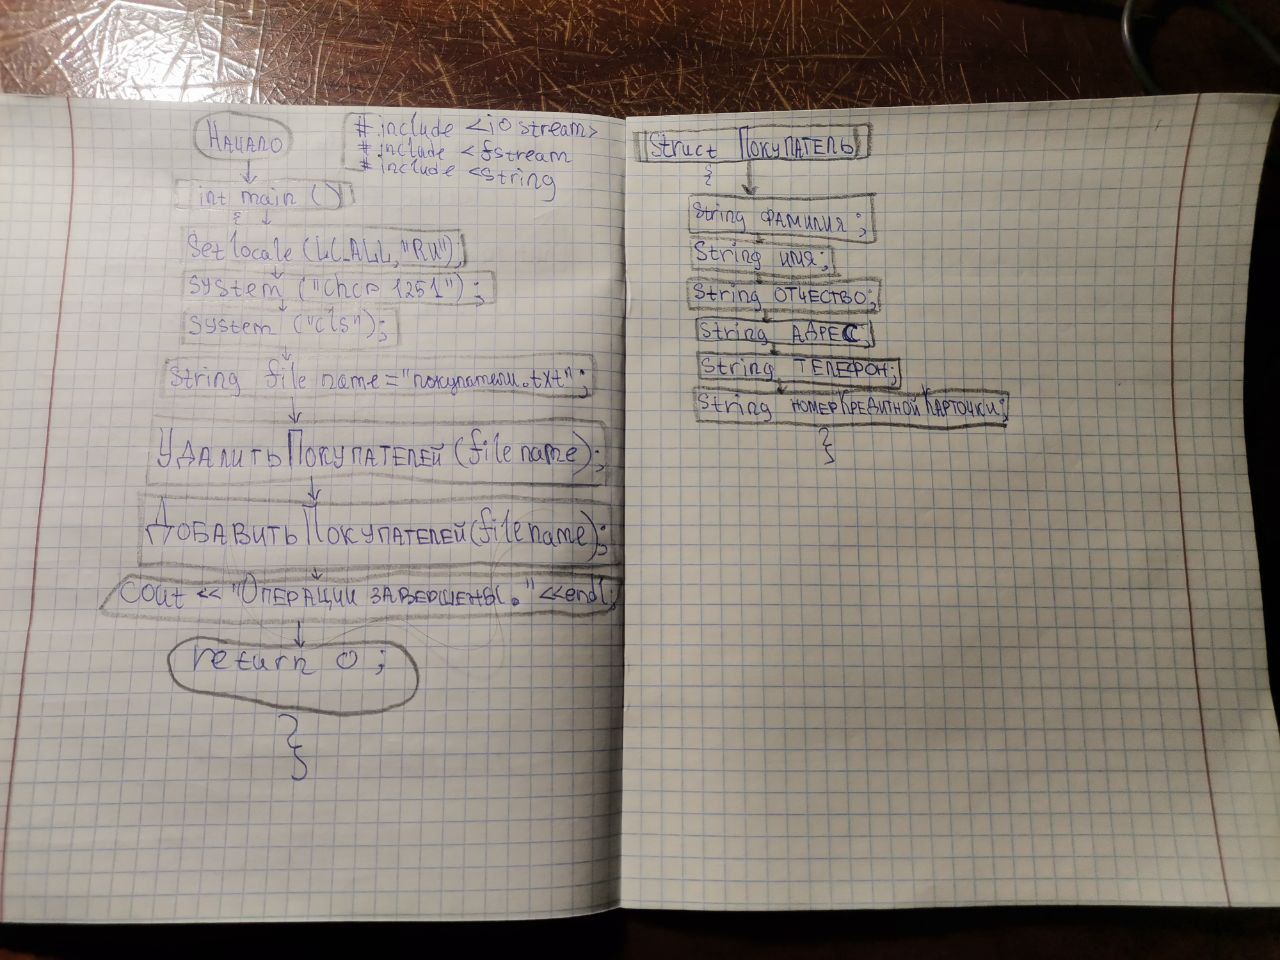 Начало
# include <iostream>
# include <fstream
# include <string
int main ()
{
Setlocale (LC_ALL, "RU");
System ("chcp 1251");
System ("cls");
String file name = "покупатели.txt";
УдалитьПокупателей (file name);
ДобавитьПокупателей (file name);
cout << "Операции завершены." <<endl;
return 0;
}
Struct Покупатель
{
String Фамилия;
String имя;
String отчество;
String Адрес;
String Телефон;
String номерКредитнойКарточки;
}